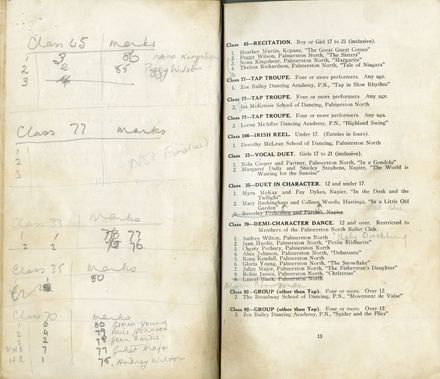 Class 45 Marks
1 3 86 Nona Kingsbeer
2 2 85 Peggy Wilson
3
Class 77 Marks
1
2
3
2 2 76
Class 35 Marks
80
Class 70 Marks
1 6 80 Young
2 4 79 Alice Johnson
3 2 78 Jean Hardie
VHC 7 77 Juliet Major
HC 1 76 Audrey Wilton
Class 45—RECITATION. Boy or Girl 17 to 21 (inclusive).
1. Heather Martin, Kopane, "The Great Guest Comes"
2. Peggy Wilson, Palmerston North
3. Nona Kingsbeer, Palmerston North, "Margarite"
4. Thelma Richardson, Palmerston North, "Tale of Niagara"
Class 77—TAP TROUPE. Four or more performers. Any age.
1. Zoe Bailey Dancing Academy, P.N., "Tap in Slow Rhythm"
Class 77—TAP TROUPE. Four or more performers. Any age.
2. Ina McKenzie School of Dancing, Palmerston North
Class 77—TAP TROUPE. Four or more performers. Any age.
3. Lorna McAffer Dancing Academy, P.N., "Highland Swing"
Class 106—IRISH REEL. Under 17. (Entries in fours).
1. Dorothy McLean School of Dancing, Palmerston North
Class 33—VOCAL DUET. Girls 17 to 21 (inclusive).
1. Nola Cooper and Partner, Palmerston North, "In a Gondola"
2. Margaret Daily and Shirley Stephens, Napier, "The World is
Waiting for the Sunrise"
Class 35—DUET IN CHARACTER. 12 and under 17.
1. Myra McKay and Fay Dykes, Napier, "In the Dusk and the
Twilight"
2. Mary Buckingham and Colleen Woods, Hastings, "In a Little Old
Garden"
3. Beverley Fothergill and Partner, Napier
Class 70—DEMI-CHARACTER DANCE. 12 and over. Restricted to
Members of the Palmerston North Ballet Club.
1. Audrey Wilton, Palmerston North
2. Jean Hardie, Palmerston North, "Petite Militaette"
3. Cherry Pothury, Palmerston North
4. Alice Johnson, Palmerston North, "Debutante"
5. Rona Kendall, Palmerston North
6. Gloria Young, Palmerston North, "The Snowflake"
7. Juliet Major, Palmerston North, "The Fisherman's Daughter"
8. Robin James, Palmerston North, "Christmas"
9. Laurel Black, Palmerston North
Class 92—GROUP (other than Tap). Four or more. Over 12.
1. The Broadway School of Dancing, P.N., "Movement de Value"
Class 92—GROUP (other than Tap). Four or more. Over 12.
2. Zoe Bailey Dancing Academy, P.N., "Spider and the Flies"
13